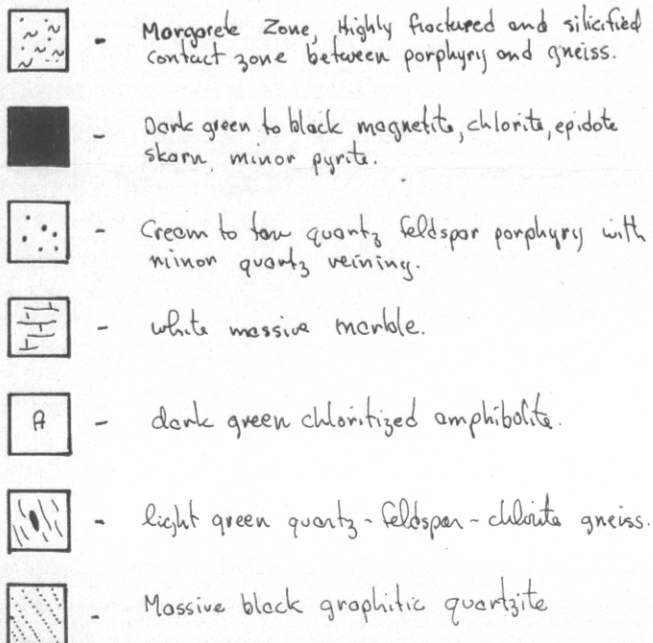 - Margarete Zone, Highly fractured and silicified
contact zone between porphyry and gneiss.
- Dark green to black magnetite, chlorite, epidote
skarn minor pyrite.
- Cream to tan quartz feldspar porphyry with
minor quartz veining.
- white massive marble.
A - dark green chloritized amphibolite.
- light green quartz-feldspar-chlorite gneiss.
- Massive black graphitic quartzite